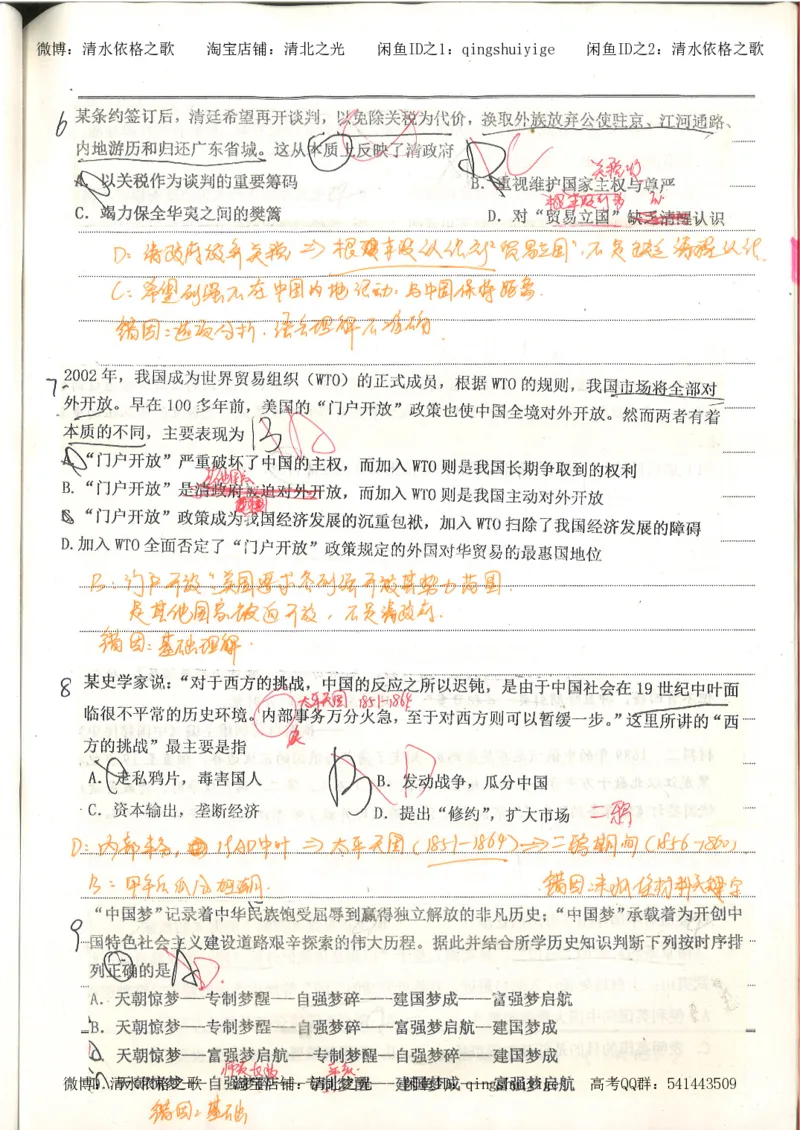 微博：清水依格之歌 淘宝店铺：清北之光 闲鱼ID之1：qingshuiyige 闲鱼ID之2：清水依格之歌
6 某条约签订后，清廷希望再开谈判，以免除关税为代价，换取外族放弃公使驻京、江河通路、
内地游历和归还广东省城。这从本质上反映了清政府
A. 以关税作为谈判的重要筹码 B. 重视维护国家主权与尊严
C. 竭力保全华夷之间的樊篱 D. 对“贸易立国”缺乏清醒认识
D：清政府放弃关税⇒根本没认识到“贸易立国”，不是缺乏清醒认识.
C：希望列强不在中国内地活动，与中国保持距离.
错因：选项分析.语言理解不准确.
7 2002 年，我国成为世界贸易组织（WTO）的正式成员，根据 WTO 的规则，我国市场将全部对
外开放。早在 100 多年前，美国的“门户开放”政策也使中国全境对外开放。然而两者有着
本质的不同，主要表现为 B A
A. “门户开放”严重破坏了中国的主权，而加入 WTO 则是我国长期争取到的权利
B. “门户开放”是清政府被迫对外开放，而加入 WTO 则是我国主动对外开放
C. “门户开放”政策成为我国经济发展的沉重包袱，加入 WTO 扫除了我国经济发展的障碍
D. 加入 WTO 全面否定了“门户开放”政策规定的外国对华贸易的最惠国地位
B：门户开放：美国要求各列强开放其势力范围.
是其他国家被迫开放，不是清政府.
错因：基础理解.
8 某史学家说：“对于西方的挑战，中国的反应之所以迟钝，是由于中国社会在 19 世纪中叶面
太平天国 1851-1864
临很不平常的历史环境。内部事务万分火急，至于对西方则可以暂缓一步。”这里所讲的“西
方的挑战”最主要是指
A. 走私鸦片，毒害国人 B. 发动战争，瓜分中国
C. 资本输出，垄断经济 D. 提出“修约”，扩大市场 二鸦
D：内部事务，19AD中叶⇒太平天国（1851-1864）⇒二鸦期间（1856-1860）
B：甲午后瓜分狂潮. 错因：未抓住材料关键字
9 “中国梦”记录着中华民族饱受屈辱到赢得独立解放的非凡历史；“中国梦”承载着为开创中
国特色社会主义建设道路艰辛探索的伟大历程。据此并结合所学历史知识判断下列按时序排
列正确的是 A D.
A. 天朝惊梦——专制梦醒——自强梦碎——建国梦成——富强梦启航
B. 天朝惊梦——专制梦醒——自强梦碎——富强梦启航—建国梦成
C. 天朝惊梦——富强梦启航——专制梦醒——自强梦碎——建国梦成
D. 天朝惊梦——自强梦碎——专制梦醒——建国梦成——富强梦启航
微博：清水依格之歌 淘宝店铺：清北之光 闲鱼ID之1：qingshuiyige 高考QQ群：541443509
错因：基础